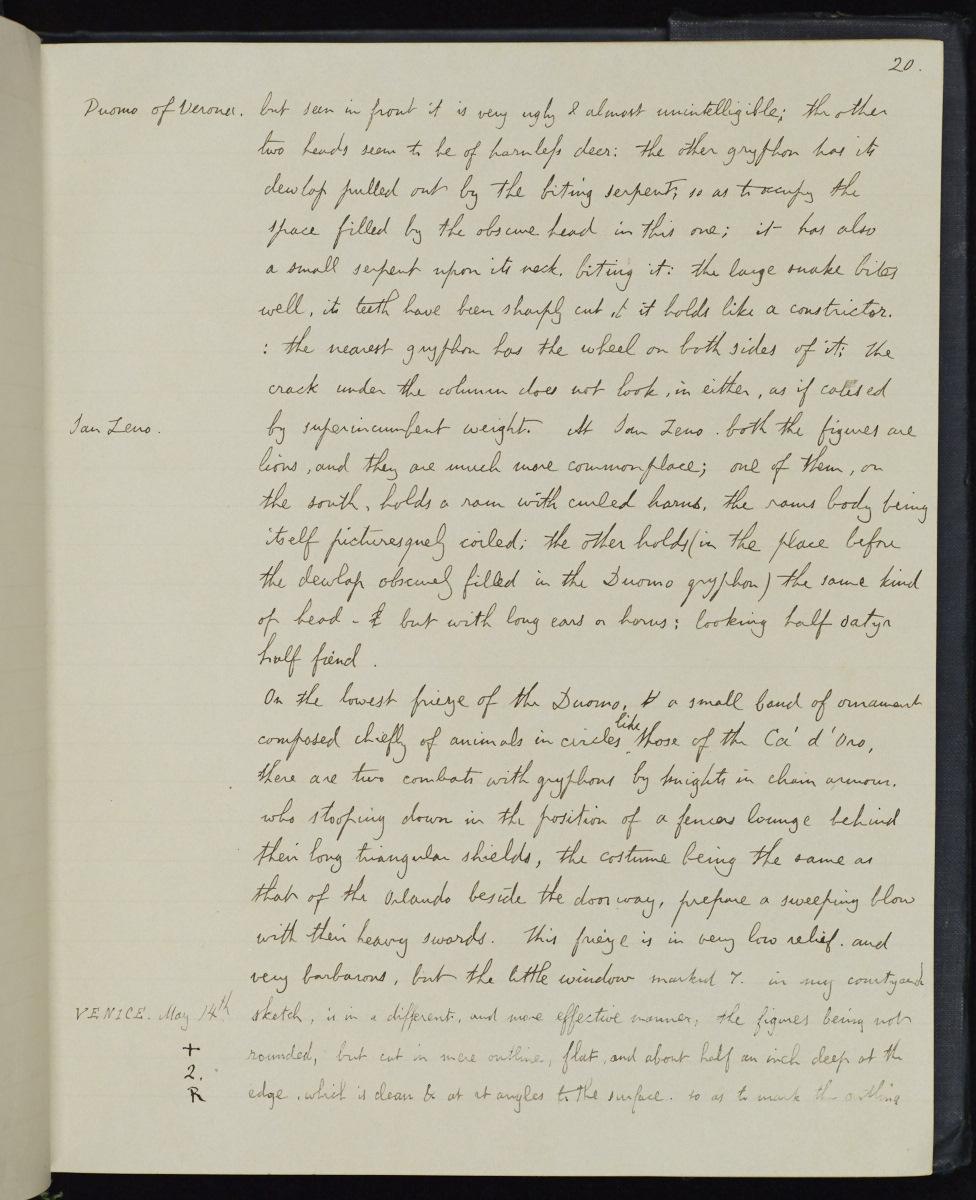 20.
Duomo of Verona. but seen in front it is very ugly & almost unintelligible; the other
two heads seem to be of harmless deer: the other gryphon has its
dewlap pulled out by the biting serpent; so as to occupy the
space filled by the obscure head in this one; it has also
a small serpent upon its neck, biting it: the large snake bites
well, its teeth have been sharply cut & it holds like a constrictor.
: the nearest gryphon has the wheel on both sides of it; the
crack under the column does not look, in either, as if caused
San Zeno. by superincumbent weight. At San Zeno. both the figures are
lions, and they are much more commonplace; one of them, on
the south, holds a ram with curled horns, the rams body being
itself picturesquely coiled; the other holds (in the place before
the dewlap obscurely filled in the Duomo gryphon) the same kind
of head - & but with long ears or horns; looking half satyr
half fiend.
On the lowest frieze of the Duomo, a small band of ornament
composed chiefly of animals in circles like those of the Ca' d'Oro,
there are two combats with gryphons by knights in chain armour.
who stooping down in the position of a fencers lounge behind
their long triangular shields, the costume being the same as
that of the Orlando beside the doorway, prepare a sweeping blow
with their heavy swords. This frieze is in very low relief. and
very barbarous, but the little window marked 7. in my courtyard
VENICE. May 14th sketch, is in a different, and more effective manner, the figures being not
+ rounded, but cut in mere outline, flat, and about half an inch deep at the
2. edge, which is clean & at rt angles to the surface. so as to mark the outline
R